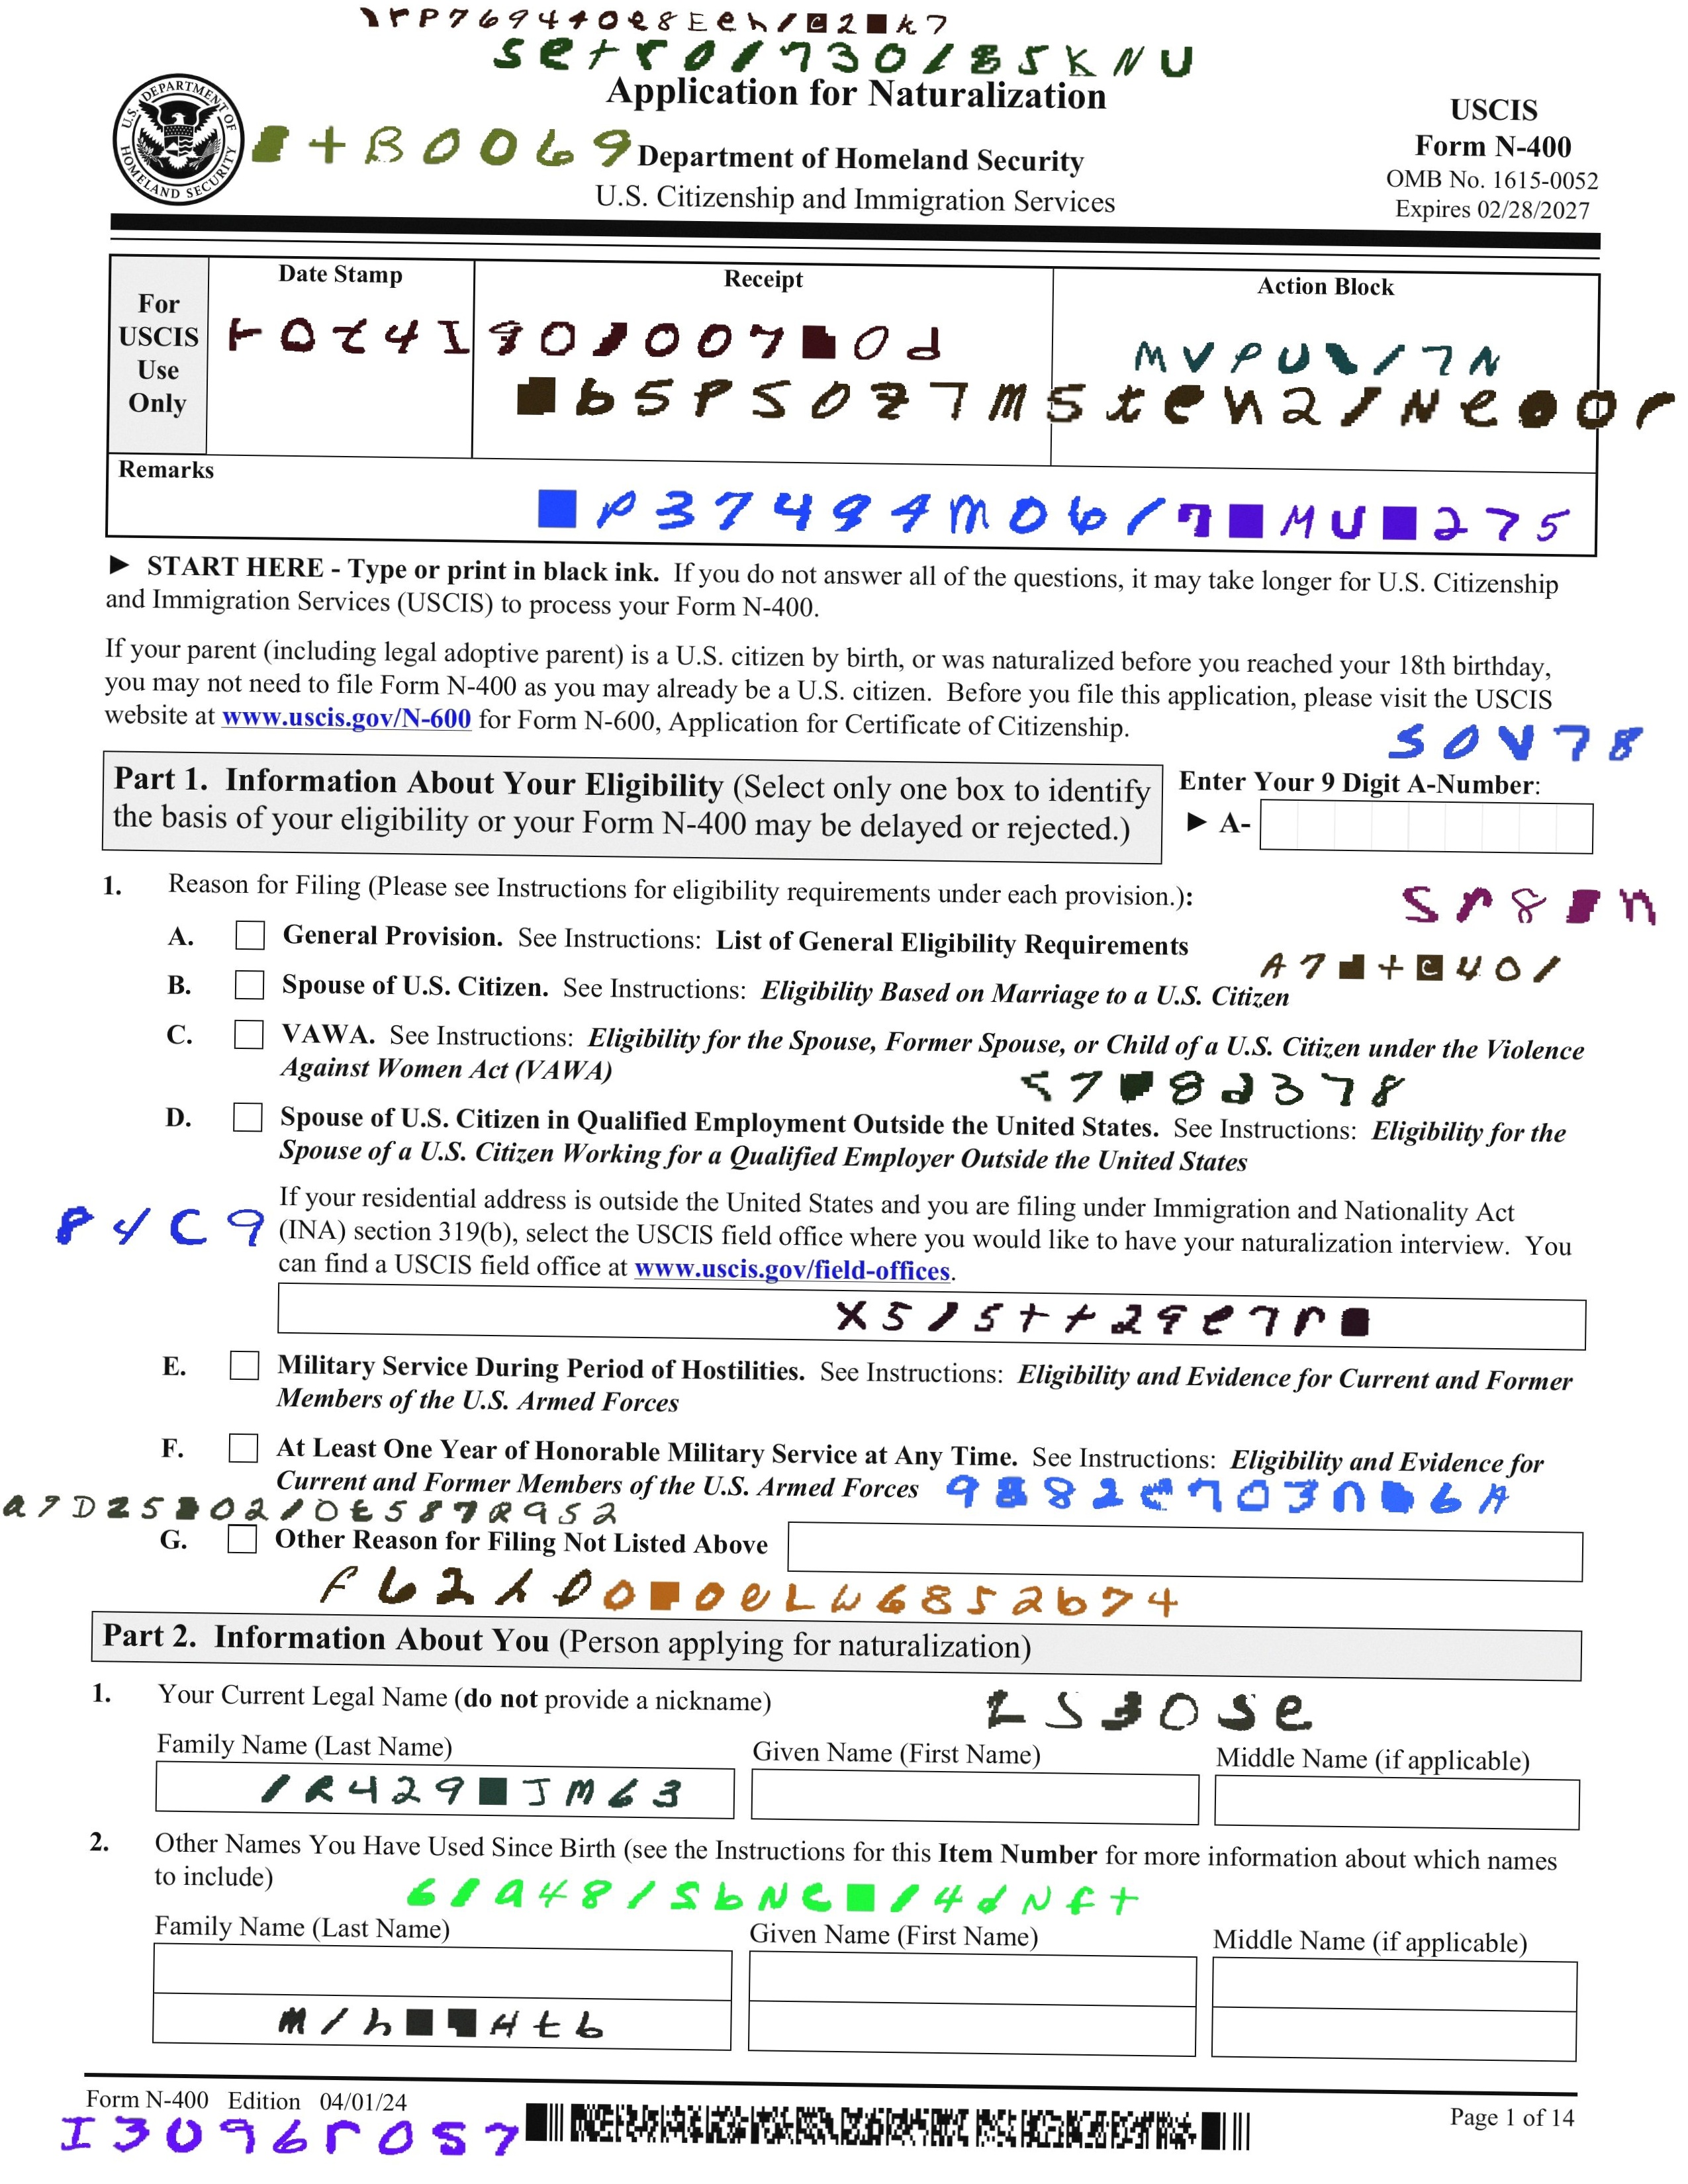 Application for Naturalization
Department of Homeland Security
U.S. Citizenship and Immigration Services
USCIS
Form N-400
OMB No. 1615-0052
Expires 02/28/2027
U.S. DEPARTMENT OF HOMELAND SECURITY
For USCIS Use Only
Date Stamp
Receipt
Action Block
Remarks
► START HERE - Type or print in black ink. If you do not answer all of the questions, it may take longer for U.S. Citizenship
and Immigration Services (USCIS) to process your Form N-400.
If your parent (including legal adoptive parent) is a U.S. citizen by birth, or was naturalized before you reached your 18th birthday,
you may not need to file Form N-400 as you may already be a U.S. citizen. Before you file this application, please visit the USCIS
website at www.uscis.gov/N-600 for Form N-600, Application for Certificate of Citizenship.
S0V78
Part 1. Information About Your Eligibility (Select only one box to identify
the basis of your eligibility or your Form N-400 may be delayed or rejected.)
Enter Your 9 Digit A-Number:
► A-
1. Reason for Filing (Please see Instructions for eligibility requirements under each provision.):
A. General Provision. See Instructions: List of General Eligibility Requirements
B. Spouse of U.S. Citizen. See Instructions: Eligibility Based on Marriage to a U.S. Citizen
C. VAWA. See Instructions: Eligibility for the Spouse, Former Spouse, or Child of a U.S. Citizen under the Violence
Against Women Act (VAWA)
D. Spouse of U.S. Citizen in Qualified Employment Outside the United States. See Instructions: Eligibility for the
Spouse of a U.S. Citizen Working for a Qualified Employer Outside the United States
If your residential address is outside the United States and you are filing under Immigration and Nationality Act
(INA) section 319(b), select the USCIS field office where you would like to have your naturalization interview. You
can find a USCIS field office at www.uscis.gov/field-offices.
E. Military Service During Period of Hostilities. See Instructions: Eligibility and Evidence for Current and Former
Members of the U.S. Armed Forces
F. At Least One Year of Honorable Military Service at Any Time. See Instructions: Eligibility and Evidence for
Current and Former Members of the U.S. Armed Forces
G. Other Reason for Filing Not Listed Above
Part 2. Information About You (Person applying for naturalization)
1. Your Current Legal Name (do not provide a nickname)
Family Name (Last Name)
Given Name (First Name)
Middle Name (if applicable)
2. Other Names You Have Used Since Birth (see the Instructions for this Item Number for more information about which names
to include)
Family Name (Last Name)
Given Name (First Name)
Middle Name (if applicable)
Form N-400 Edition 04/01/24
Page 1 of 14
I3096r0S7